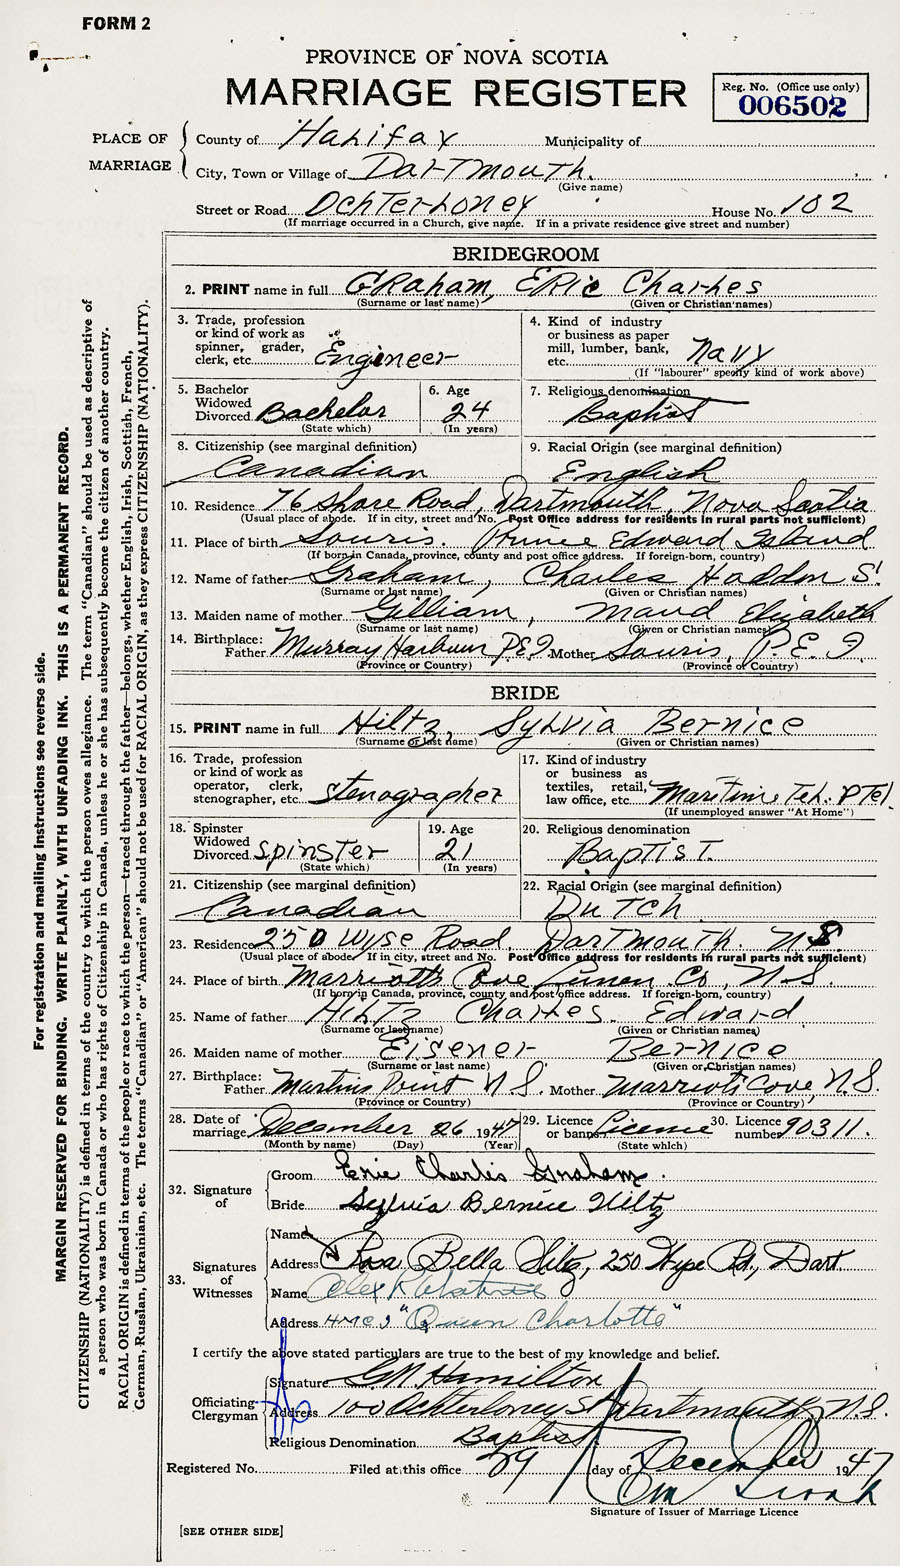 FORM 2
PROVINCE OF NOVA SCOTIA
MARRIAGE REGISTER
Reg. No. (Office use only)
006502
PLACE OF MARRIAGE
County of Halifax Municipality of
City, Town or Village of Dartmouth.
(Give name)
Street or Road Ochterloney House No. 102
(If marriage occurred in a Church, give name. If in a private residence give street and number)
BRIDEGROOM
2. PRINT name in full Graham, Eric Charles
(Surname or last name) (Given or Christian names)
3. Trade, profession or kind of work as spinner, grader, clerk, etc. Engineer
4. Kind of industry or business as paper mill, lumber, bank, etc. Navy
(If "labourer" specify kind of work above)
5. Bachelor Widowed Divorced Bachelor
(State which)
6. Age 24
(In years)
7. Religious denomination
Baptist
8. Citizenship (see marginal definition)
Canadian
9. Racial Origin (see marginal definition)
English
10. Residence 76 Shore Road, Dartmouth, Nova Scotia
(Usual place of abode. If in city, street and No. Post Office address for residents in rural parts not sufficient)
11. Place of birth Souris. Prince Edward Island
(If born in Canada, province, county and post office address. If foreign-born, country)
12. Name of father Graham, Charles Haddon S.
(Surname or last name) (Given or Christian names)
13. Maiden name of mother Gilliam, Maud Elizabeth
(Surname or last name) (Given or Christian names)
14. Birthplace: Father Murray Harbour P.E.I. Mother Souris, P.E.I.
(Province or Country) (Province or Country)
BRIDE
15. PRINT name in full Hiltz, Sylvia Bernice
(Surname or last name) (Given or Christian names)
16. Trade, profession or kind of work as operator, clerk, stenographer, etc. Stenographer
17. Kind of industry or business as textiles, retail, law office, etc. Maritime Tel. & Tel.
(If unemployed answer "At Home")
18. Spinster Widowed Divorced Spinster
(State which)
19. Age 21
(In years)
20. Religious denomination
Baptist.
21. Citizenship (see marginal definition)
Canadian
22. Racial Origin (see marginal definition)
Dutch
23. Residence 250 Wyse Road, Dartmouth. N.S.
(Usual place of abode. If in city, street and No. Post Office address for residents in rural parts not sufficient)
24. Place of birth Marriotts Cove Lunen. Co, N.S.
(If born in Canada, province, county and post office address. If foreign-born, country)
25. Name of father Hiltz Charles Edward
(Surname or last name) (Given or Christian names)
26. Maiden name of mother Eisener Bernice
(Surname or last name) (Given or Christian names)
27. Birthplace: Father Martins Point N.S. Mother Marriotts Cove, N.S.
(Province or Country) (Province or Country)
28. Date of marriage December 26 1947
(Month by name) (Day) (Year)
29. Licence or banns Licence
(State which)
30. Licence number 90311.
32. Signature of
Groom Eric Charles Graham.
Bride Sylvia Bernice Hiltz
33. Signatures of Witnesses
Name
Address Rosa Bella Hiltz, 250 Wyse Rd., Dart.
Name Alex R
Address HMCS "Queen Charlotte"
I certify the above stated particulars are true to the best of my knowledge and belief.
Officiating Clergyman
Signature G.N. Hamilton
Address 100 Ochterloney St Dartmouth, N.S.
Religious Denomination Baptist
Registered No. Filed at this office 29 day of December 1947
Signature of Issuer of Marriage Licence
[SEE OTHER SIDE]
For registration and mailing instructions see reverse side.
MARGIN RESERVED FOR BINDING. WRITE PLAINLY, WITH UNFADING INK. THIS IS A PERMANENT RECORD.
CITIZENSHIP (NATIONALITY) is defined in terms of the country to which the person owes allegiance. The term "Canadian" should be used as descriptive of
a person who was born in Canada or who has rights of Citizenship in Canada, unless he or she has subsequently become the citizen of another country.
RACIAL ORIGIN is defined in terms of the people or race to which the person—traced through the father—belongs, whether English, Irish, Scottish, French,
German, Russian, Ukrainian, etc. The terms "Canadian" or "American" should not be used for RACIAL ORIGIN, as they express CITIZENSHIP (NATIONALITY).